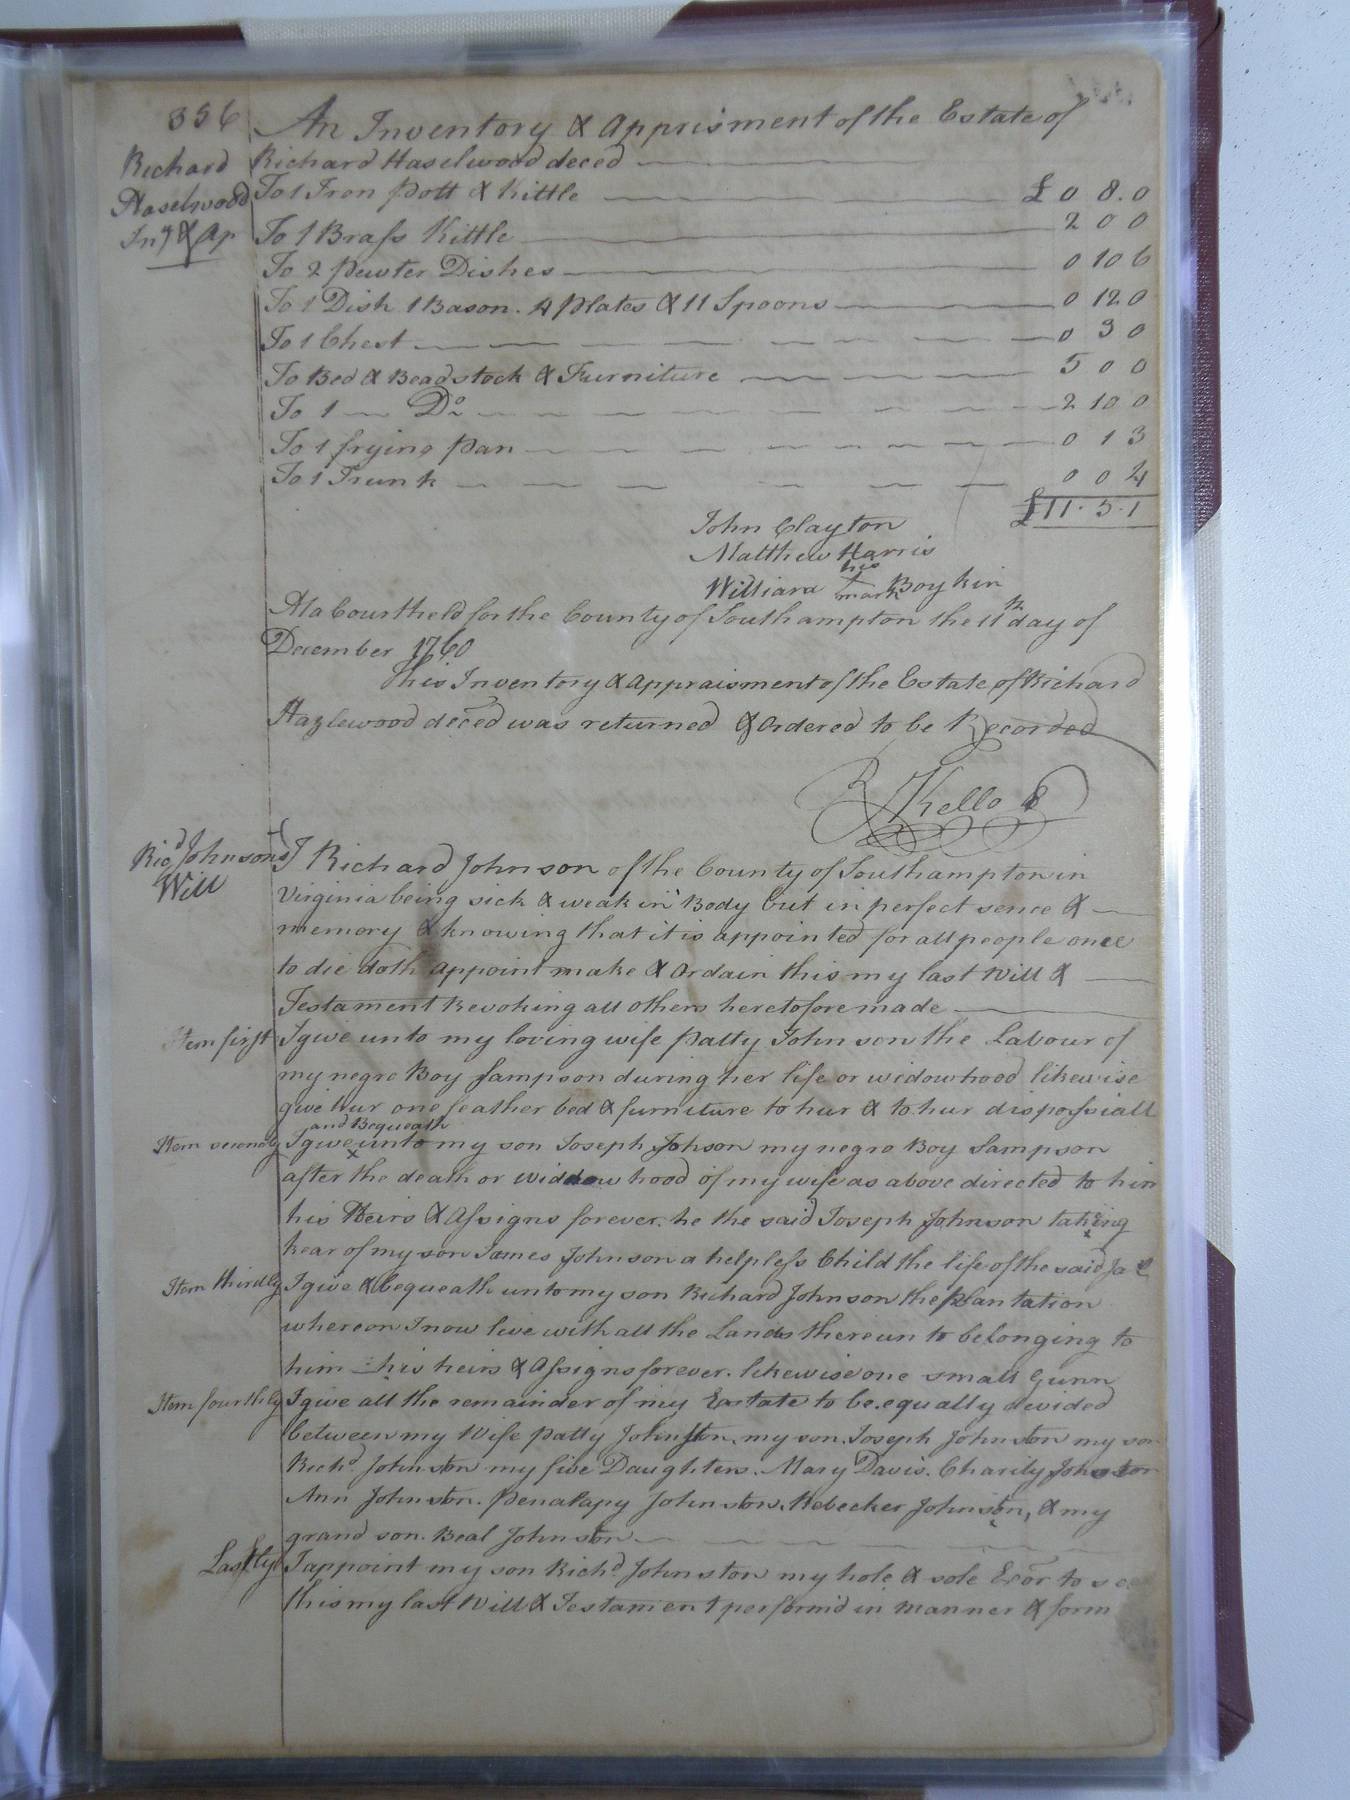 356
An Inventory & Apprisment of the Estate of
Richard Haselwood deced
Richard
Haselwood
Inv & Ap
To 1 Iron Pott & Kittle £0 8.0
To 1 Brass Kittle 2 0 0
To 2 Pewter Dishes 0 10 6
To 1 Dish 1 Bason. 4 Plates & 11 Spoons 0 12 0
To 1 Chest 0 3 0
To Bed & Beadstock & Furniture 5 0 0
To 1 Do 2 10 0
To 1 frying Pan 0 1 3
To 1 Trunk 0 0 4
£11.5.1
John Clayton
Matthew Harris
his
William + Boykin
mark
At a Court held for the County of Southampton the 11th day of
December 1760
This Inventory & Appraisment of the Estate of Richard
Hazlewood deced was returned & Ordered to be Recorded
R Kello
Ricd Johnsons
Will
I Richard Johnson of the County of Southampton in
Virginia being sick & weak in Body but in perfect sence &
memory & knowing that it is appointed for all people once
to die doth appoint make & Ordain this my last Will &
Testament Revoking all others heretofore made
Item first I give unto my loving wife Patty Johnson the Labour of
my negro Boy Sampson during her life or widowhood likewise
give hur one feather bed & furniture to hur & to hur dispossiall
and Bequeath
Item secondly I give x unto my son Joseph Johson my negro Boy Sampson
after the death or widdow hood of my wife as above directed to him
his Heirs & Assigns forever. he the said Joseph Johnson taking
kear of my son James Johnson a helpless Child the life of the said Ja
Item thirdly I give & bequeath unto my son Richard Johnson the Plantation
whereon I now live with all the Lands thereun to belonging to
him his heirs & Assigns forever. likewise one small Gunn
Item fourthly I give all the remainder of my Eastate to be equally devided
between my Wife Patty Johnston, my son Joseph Johnston my son
Richd Johnston my five Daughters. Mary Davis. Charity Johnston
Ann Johnston. Penalapy Johnston. Rebecker Johnston, & my
grand son. Beal Johnston
Lastly I appoint my son Richd Johnston my hole & sole Exor to see
this my last Will & Testament performd in manner & form